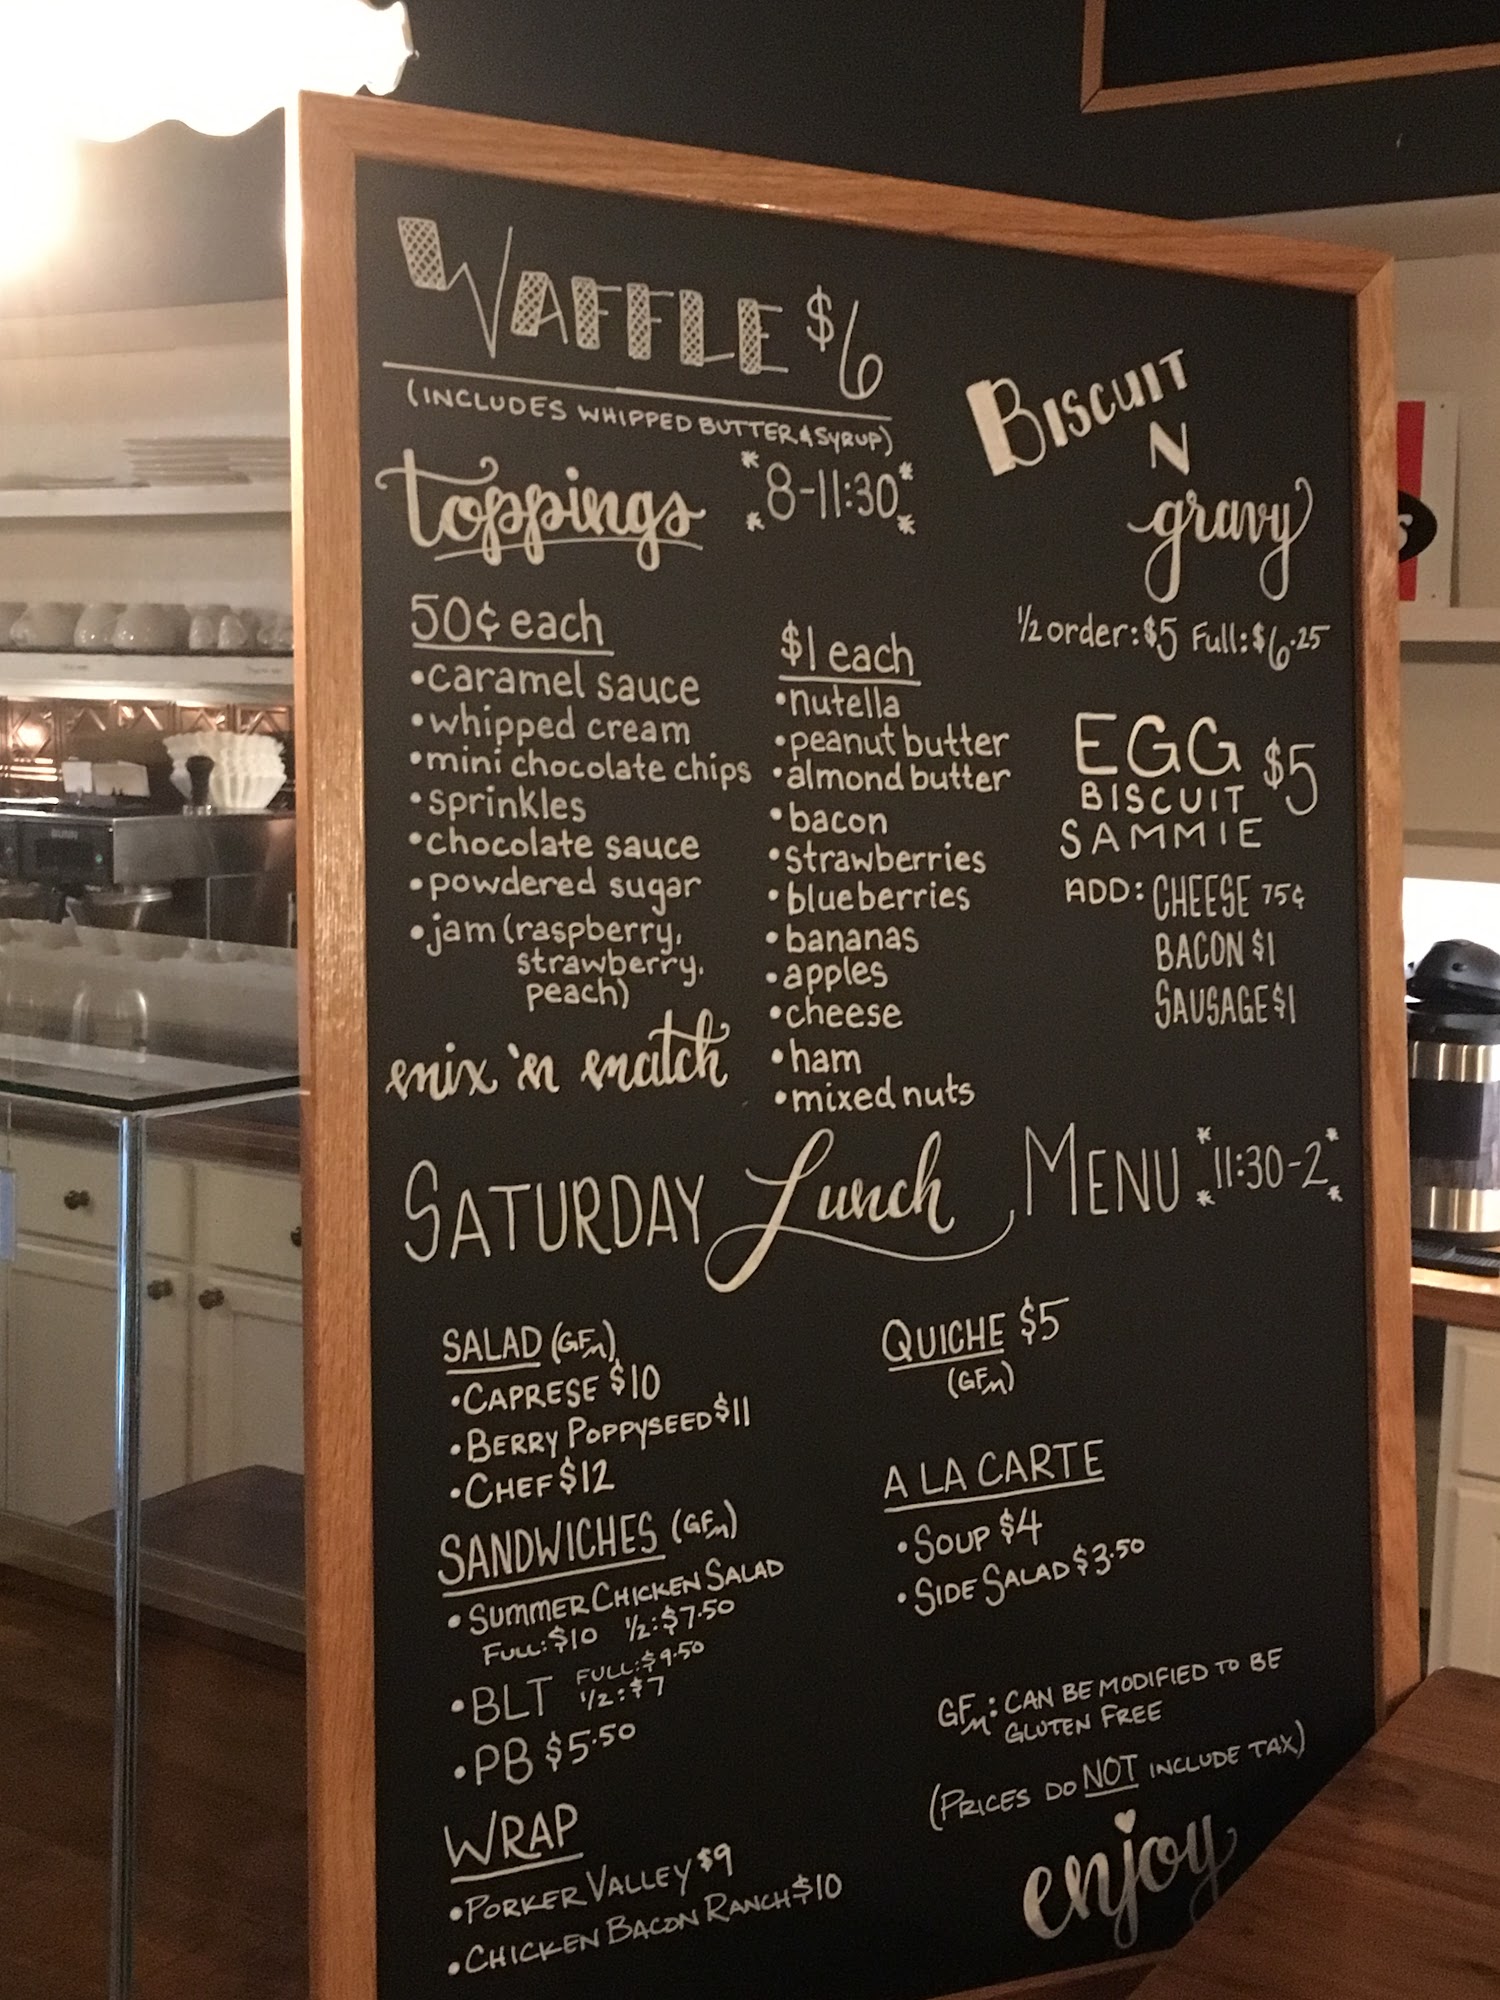 WAFFLE $6
(INCLUDES WHIPPED BUTTER & SYRUP)
toppings
*8-11:30*
50¢ each
•caramel sauce
•whipped cream
•mini chocolate chips
•sprinkles
•chocolate sauce
•powdered sugar
•jam (raspberry,
strawberry,
peach)
mix 'n match
$1 each
•nutella
•peanut butter
•almond butter
•bacon
•strawberries
•blueberries
•bananas
•apples
•cheese
•ham
•mixed nuts
BISCUIT
N
gravy
1/2 order: $5 Full: $6.25
EGG
BISCUIT $5
SAMMIE
ADD: CHEESE 75¢
BACON $1
SAUSAGE $1
SATURDAY Lunch MENU *11:30-2*
SALAD (GFM)
•CAPRESE $10
•BERRY POPPYSEED $11
•CHEF $12
SANDWICHES (GFM)
•SUMMER CHICKEN SALAD
FULL: $10 1/2: $7.50
•BLT FULL: $9.50
1/2: $7
•PB $5.50
WRAP
•PORKER VALLEY $9
•CHICKEN BACON RANCH $10
QUICHE $5
(GFM)
A LA CARTE
•SOUP $4
•SIDE SALAD $3.50
GFM: CAN BE MODIFIED TO BE
GLUTEN FREE
(PRICES DO NOT INCLUDE TAX)
enjoy
BUNN